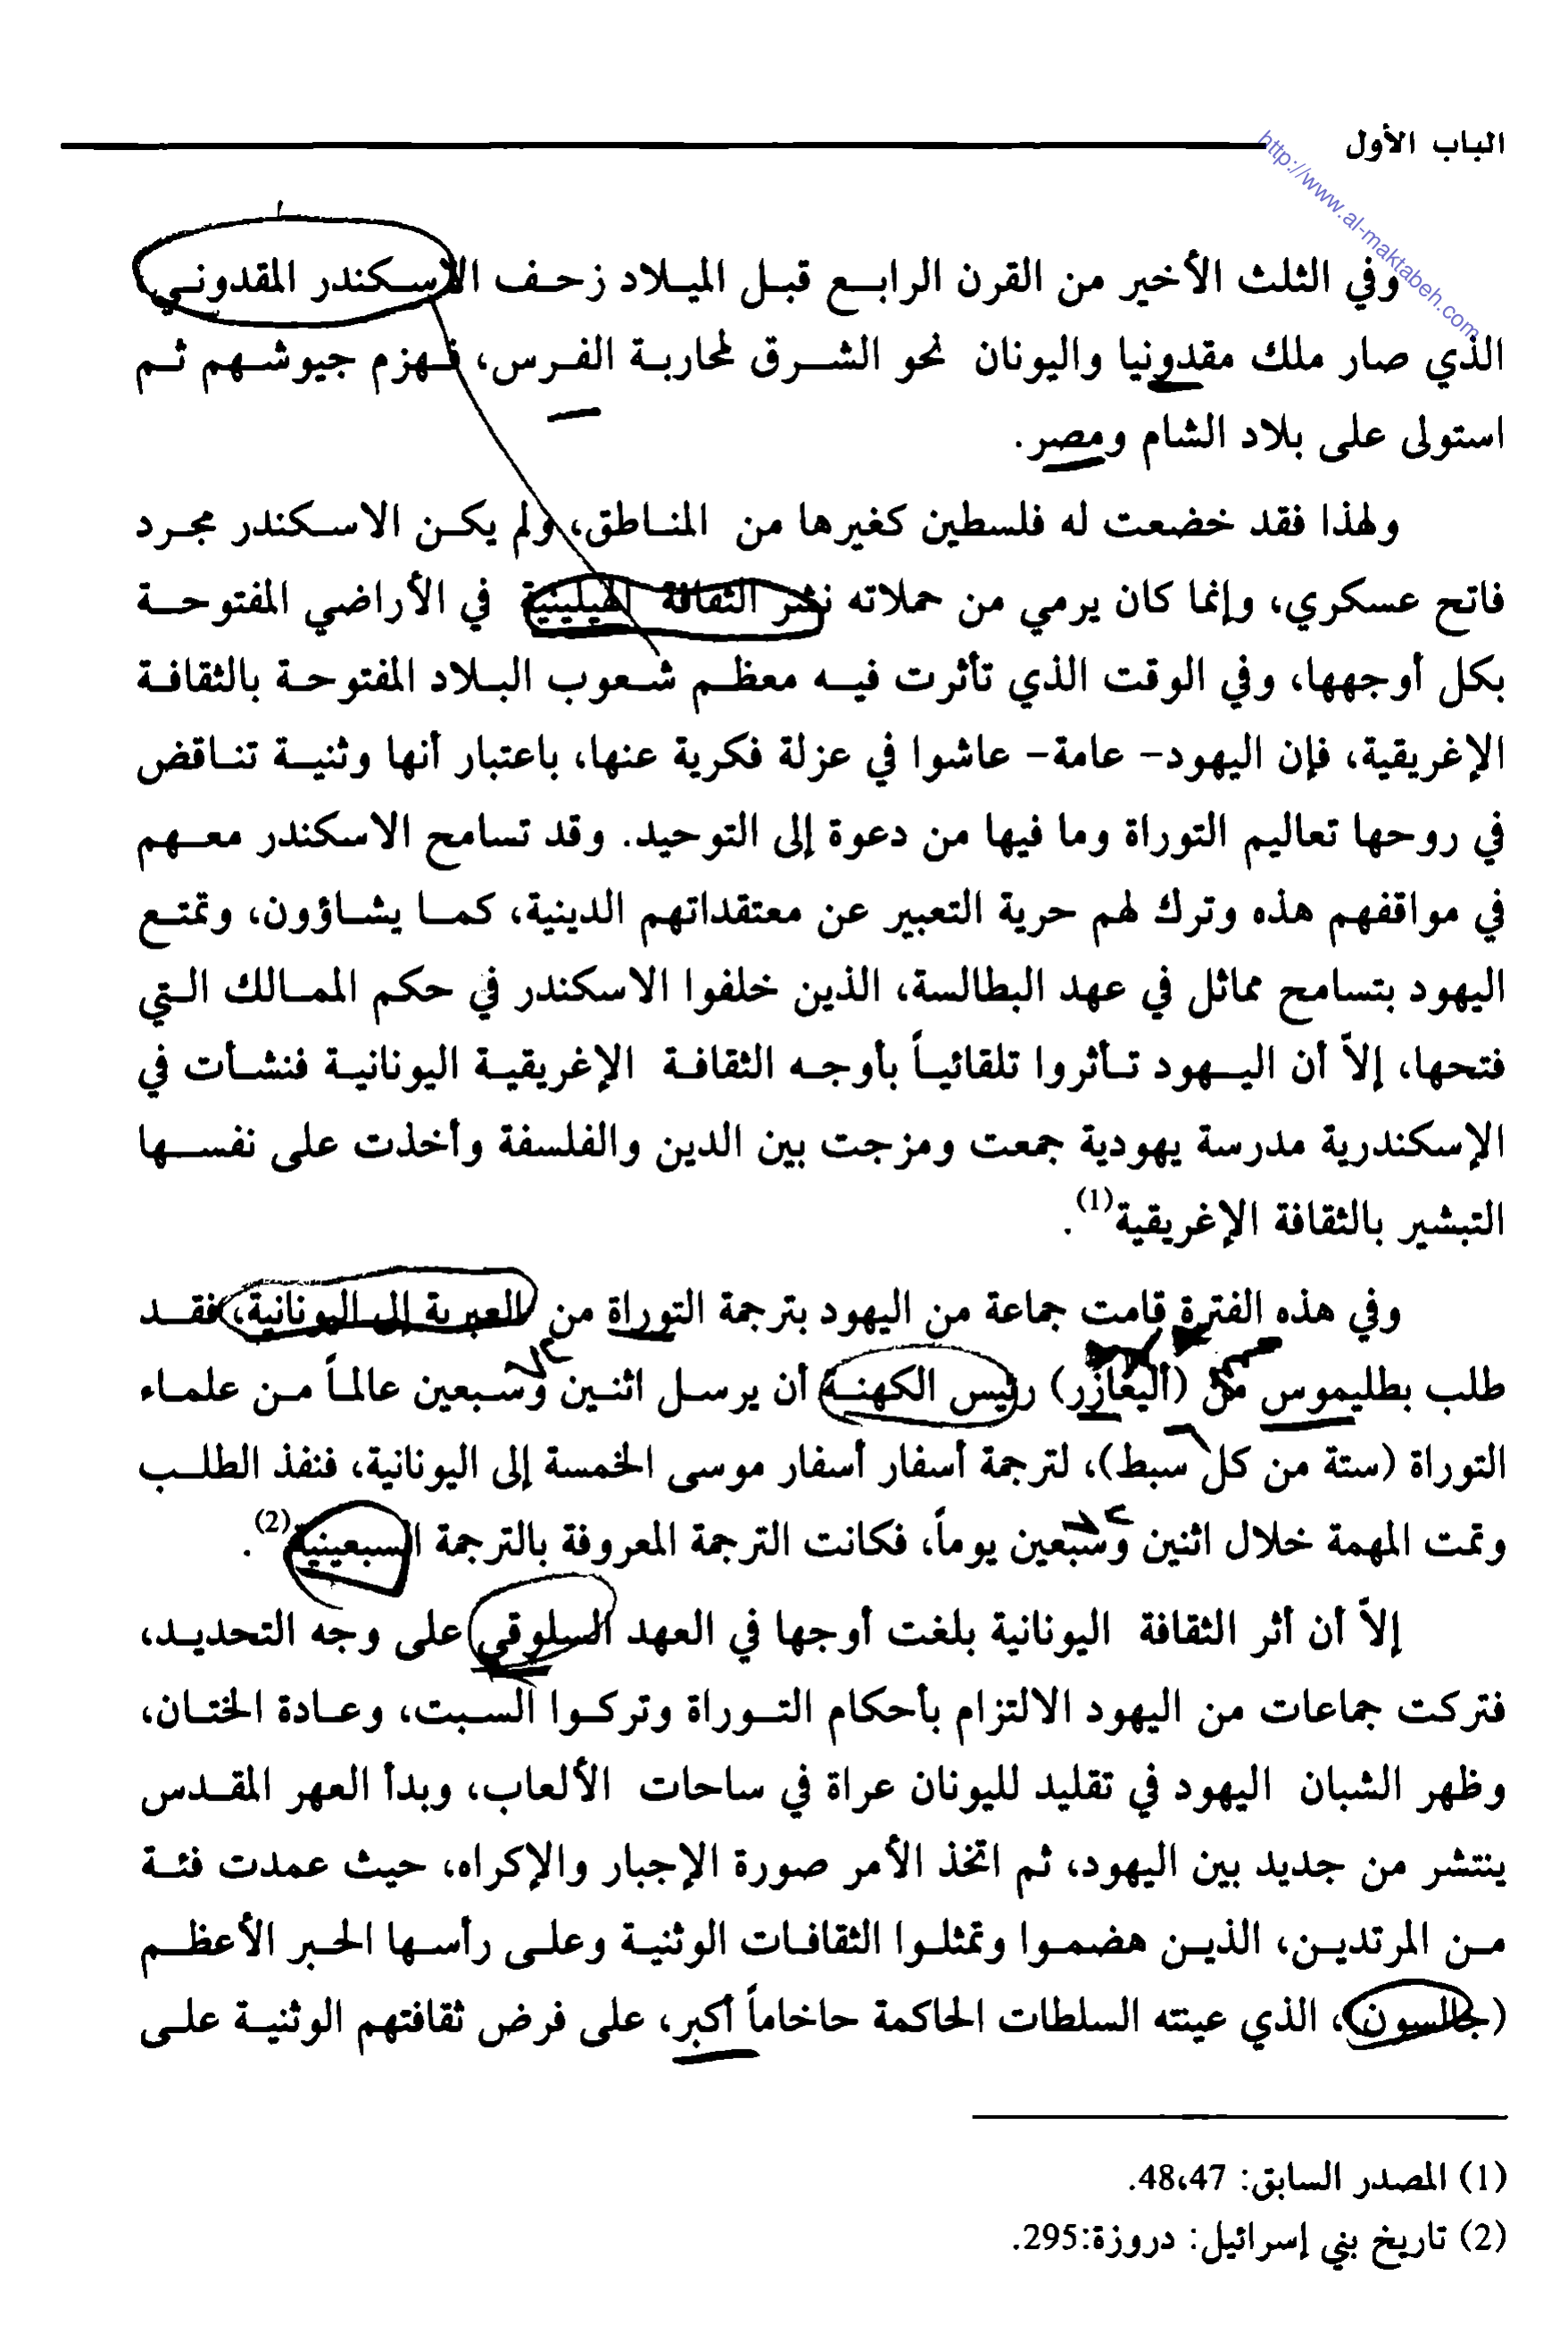 الباب الأول
http://www.al-maktabeh.com
وفي الثلث الأخير من القرن الرابع قبل الميلاد زحف الاسكندر المقدوني
الذي صار ملك مقدونيا واليونان نحو الشرق لمحاربة الفرس، فهزم جيوشهم ثم
استولى على بلاد الشام ومصر.
ولهذا فقد خضعت له فلسطين كغيرها من المناطق، ولم يكن الاسكندر مجرد
فاتح عسكري، وإنما كان يرمي من حملاته نشر الثقافة الهيلينية في الأراضي المفتوحة
بكل أوجهها، وفي الوقت الذي تأثرت فيه معظم شعوب البلاد المفتوحة بالثقافة
الإغريقية، فإن اليهود- عامة- عاشوا في عزلة فكرية عنها، باعتبار أنها وثنية تناقض
في روحها تعاليم التوراة وما فيها من دعوة إلى التوحيد. وقد تسامح الاسكندر معهم
في مواقفهم هذه وترك لهم حرية التعبير عن معتقداتهم الدينية، كما يشاؤون، وتمتع
اليهود بتسامح مماثل في عهد البطالسة، الذين خلفوا الاسكندر في حكم الممالك التي
فتحها، إلاّ أن اليهود تأثروا تلقائياً بأوجه الثقافة الإغريقية اليونانية فنشأت في
الإسكندرية مدرسة يهودية جمعت ومزجت بين الدين والفلسفة وأخذت على نفسها
التبشير بالثقافة الإغريقية(1).
وفي هذه الفترة قامت جماعة من اليهود بترجمة التوراة من العبرية إلى اليونانية، فقد
طلب بطليموس من (أليعازر) رئيس الكهنة أن يرسل اثنين وسبعين عالماً من علماء
التوراة (ستة من كل سبط)، لترجمة أسفار أسفار موسى الخمسة إلى اليونانية، فنفذ الطلب
وتمت المهمة خلال اثنين وسبعين يوماً، فكانت الترجمة المعروفة بالترجمة السبعينية(2).
إلاّ أن أثر الثقافة اليونانية بلغت أوجها في العهد السلوقي على وجه التحديد،
فتركت جماعات من اليهود الالتزام بأحكام التوراة وتركوا السبت، وعادة الختان،
وظهر الشبان اليهود في تقليد لليونان عراة في ساحات الألعاب، وبدأ العهر المقدس
ينتشر من جديد بين اليهود، ثم اتخذ الأمر صورة الإجبار والإكراه، حيث عمدت فئة
من المرتدين، الذين هضموا وتمثلوا الثقافات الوثنية وعلى رأسها الحبر الأعظم
(جالسون)، الذي عينته السلطات الحاكمة حاخاماً أكبر، على فرض ثقافتهم الوثنية على
(1) المصدر السابق: 48،47.
(2) تاريخ بني إسرائيل: دروزة:295.